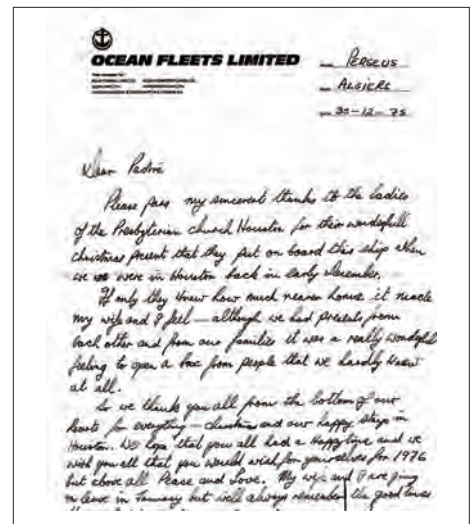 OCEAN FLEETS LIMITED
PERSEUS
ALGIERS
30-12-75
Dear Padre
Please pass my sincerest thanks to the ladies
of the Presbyterian church Houston for their wonderfull
christmas present that they put on board this ship when
we were in Houston back in early December.
If only they knew how much nearer home it made
my wife and I feel — although we had presents from
each other and from our families it was a really wonderful
feeling to open a box from people that we hardly knew
at all.
So we thank you all from the bottom of our
hearts for everything — christmas and our happy stays in
Houston. We hope that you all had a happy time and we
wish you all that you would wish for yourselves for 1976
but above all Peace and Love. My wife and I are going
on leave in January but we'll always remember the good times